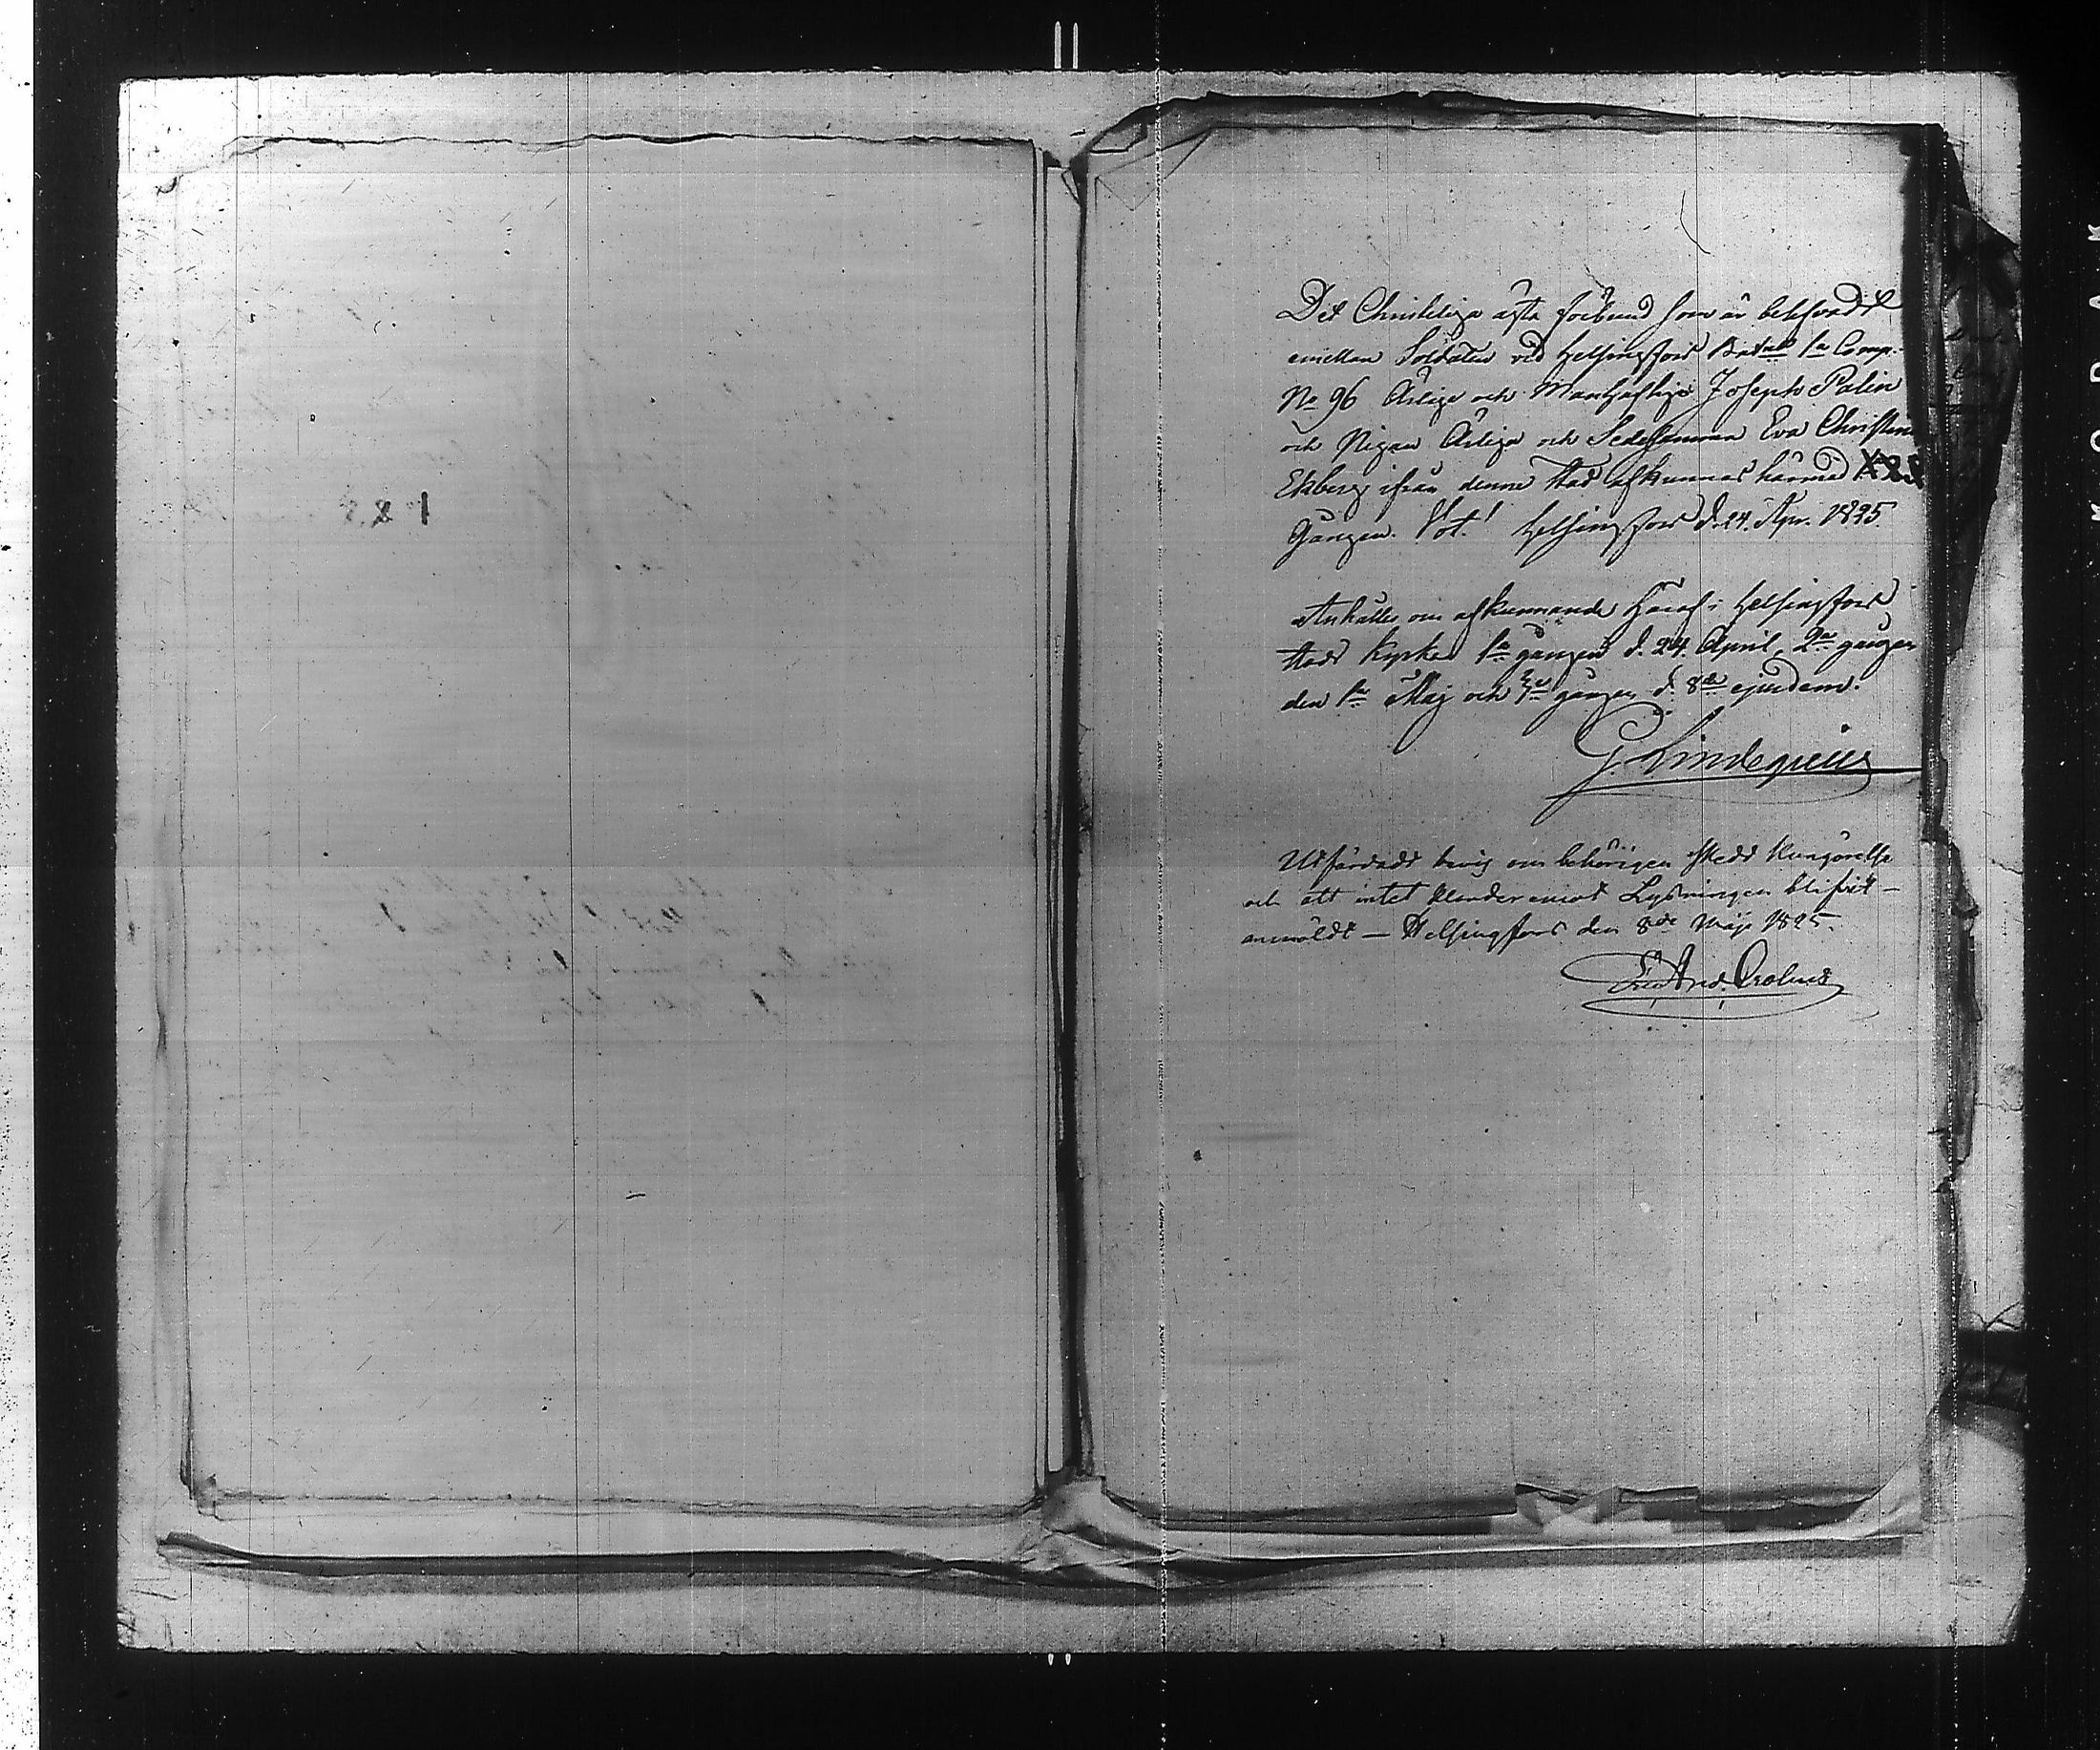 Det Christeliga ägta förbund som är beslutadt
emellan Soldaten vid Helsingfors Batal 1a Comp.
No 96 Ärlige och Manhaftige Joseph Palin
och Pigan Ärliga och Sedesamma Eva Christina
Ekberg ifrån denne Stad afkunnas härmed
Gången. Vot! Helsingfors d. 24. Apr. 1825.
Anhålles om afkunnande häraf i Helsingfors
Stads Kyrka 1a gången d. 24. April, 2a gången
den 1a Maj och 3e gången d. 8de ejusdem.
G. Lindequist
Utfärdadt bevis om behörigen skedd Kungörelse
och att intet klander emot Lysningen blifvit
anmäldt — Helsingfors den 8de Maji 1825.
And. Crolus